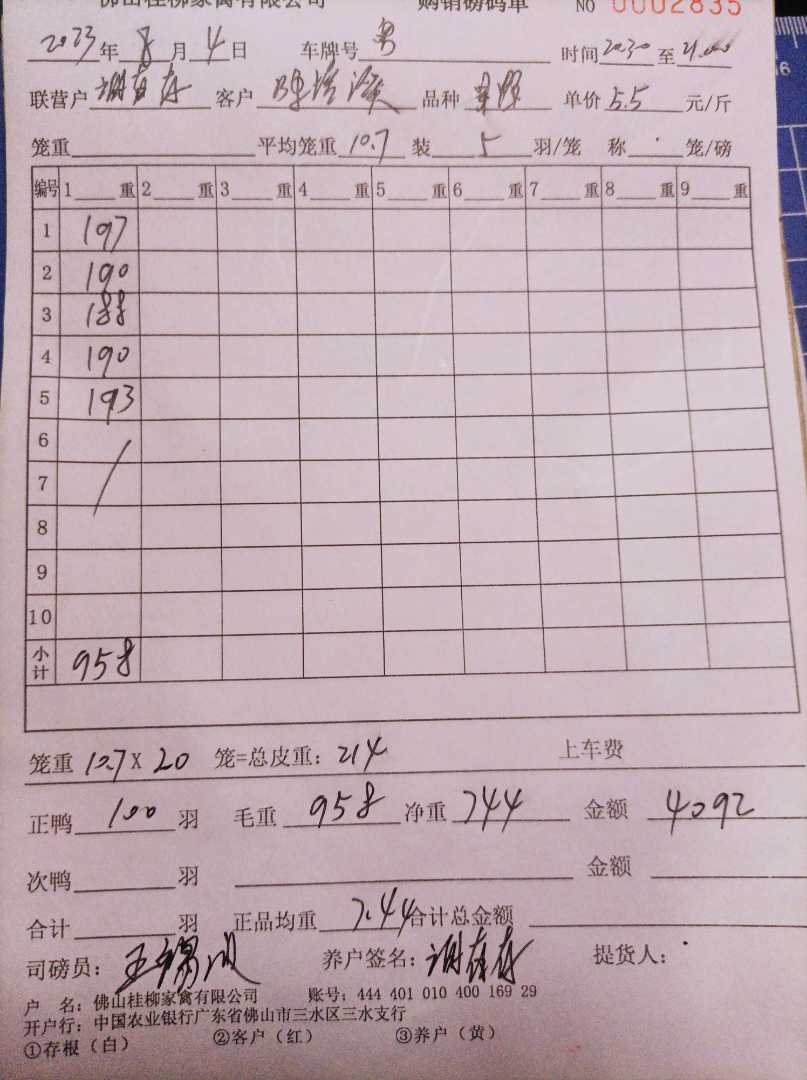 佛山桂柳家禽有限公司 购销磅码单 NO 0002835
2023年8月4日 车牌号 时间20:30至21:00
联营户谢存存 客户 品种 单价5.5元/斤
笼重 平均笼重10.7 装5羽/笼 称 笼/磅
编号 1 重 2 重 3 重 4 重 5 重 6 重 7 重 8 重 9 重
1 197
2 190
3 188
4 190
5 193
6
7
8
9
10
小计 958
笼重10.7X20 笼=总皮重：214 上车费
正鸭100羽 毛重958 净重744 金额4092
次鸭 羽 金额
合计 羽 正品均重7.44 合计总金额
司磅员： 养户签名：谢存存 提货人：
户 名：佛山桂柳家禽有限公司 账号：444 401 010 400 169 29
开户行：中国农业银行广东省佛山市三水区三水支行
①存根（白） ②客户（红） ③养户（黄）